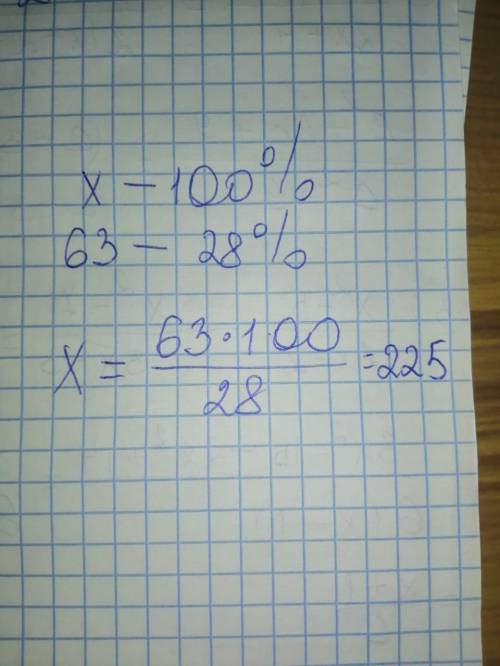 x – 100%
63 – 28%
X = 63·100 / 28 = 225